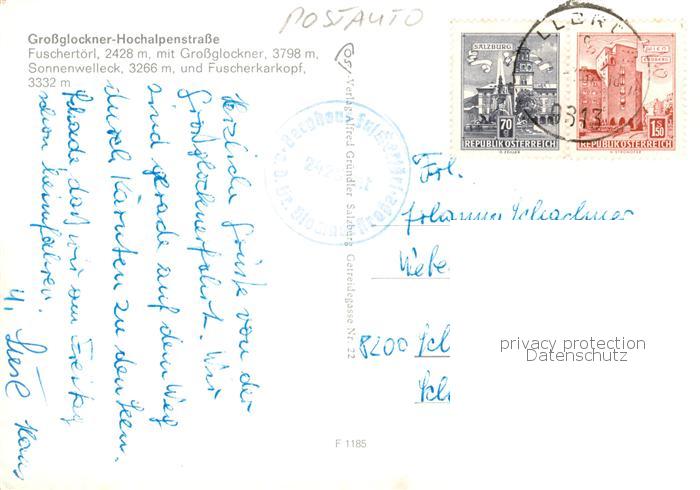 POSTAUTO
Großglockner-Hochalpenstraße
Fuschertörl, 2428 m, mit Großglockner, 3798 m,
Sonnenwelleck, 3266 m, und Fuscherkarkopf,
3332 m
Herzliche Grüße von der
Großglocknerfahrt. Wir
sind gerade auf dem Weg
durch Kärnten zu den
Schade daß wir am Freitag
schon heimfahren.
Hans
Verlag Alfred Gründler Salzburg Getreidegasse Nr. 22
SALZBURG
70 g
REPUBLIK ÖSTERREICH
WIEN
ERDBERG
S 1.50
REPUBLIK ÖSTERREICH
Frl.
Johanna Schachner
Webe
8200 Sch
Sch
privacy protection
Datenschutz
F 1185